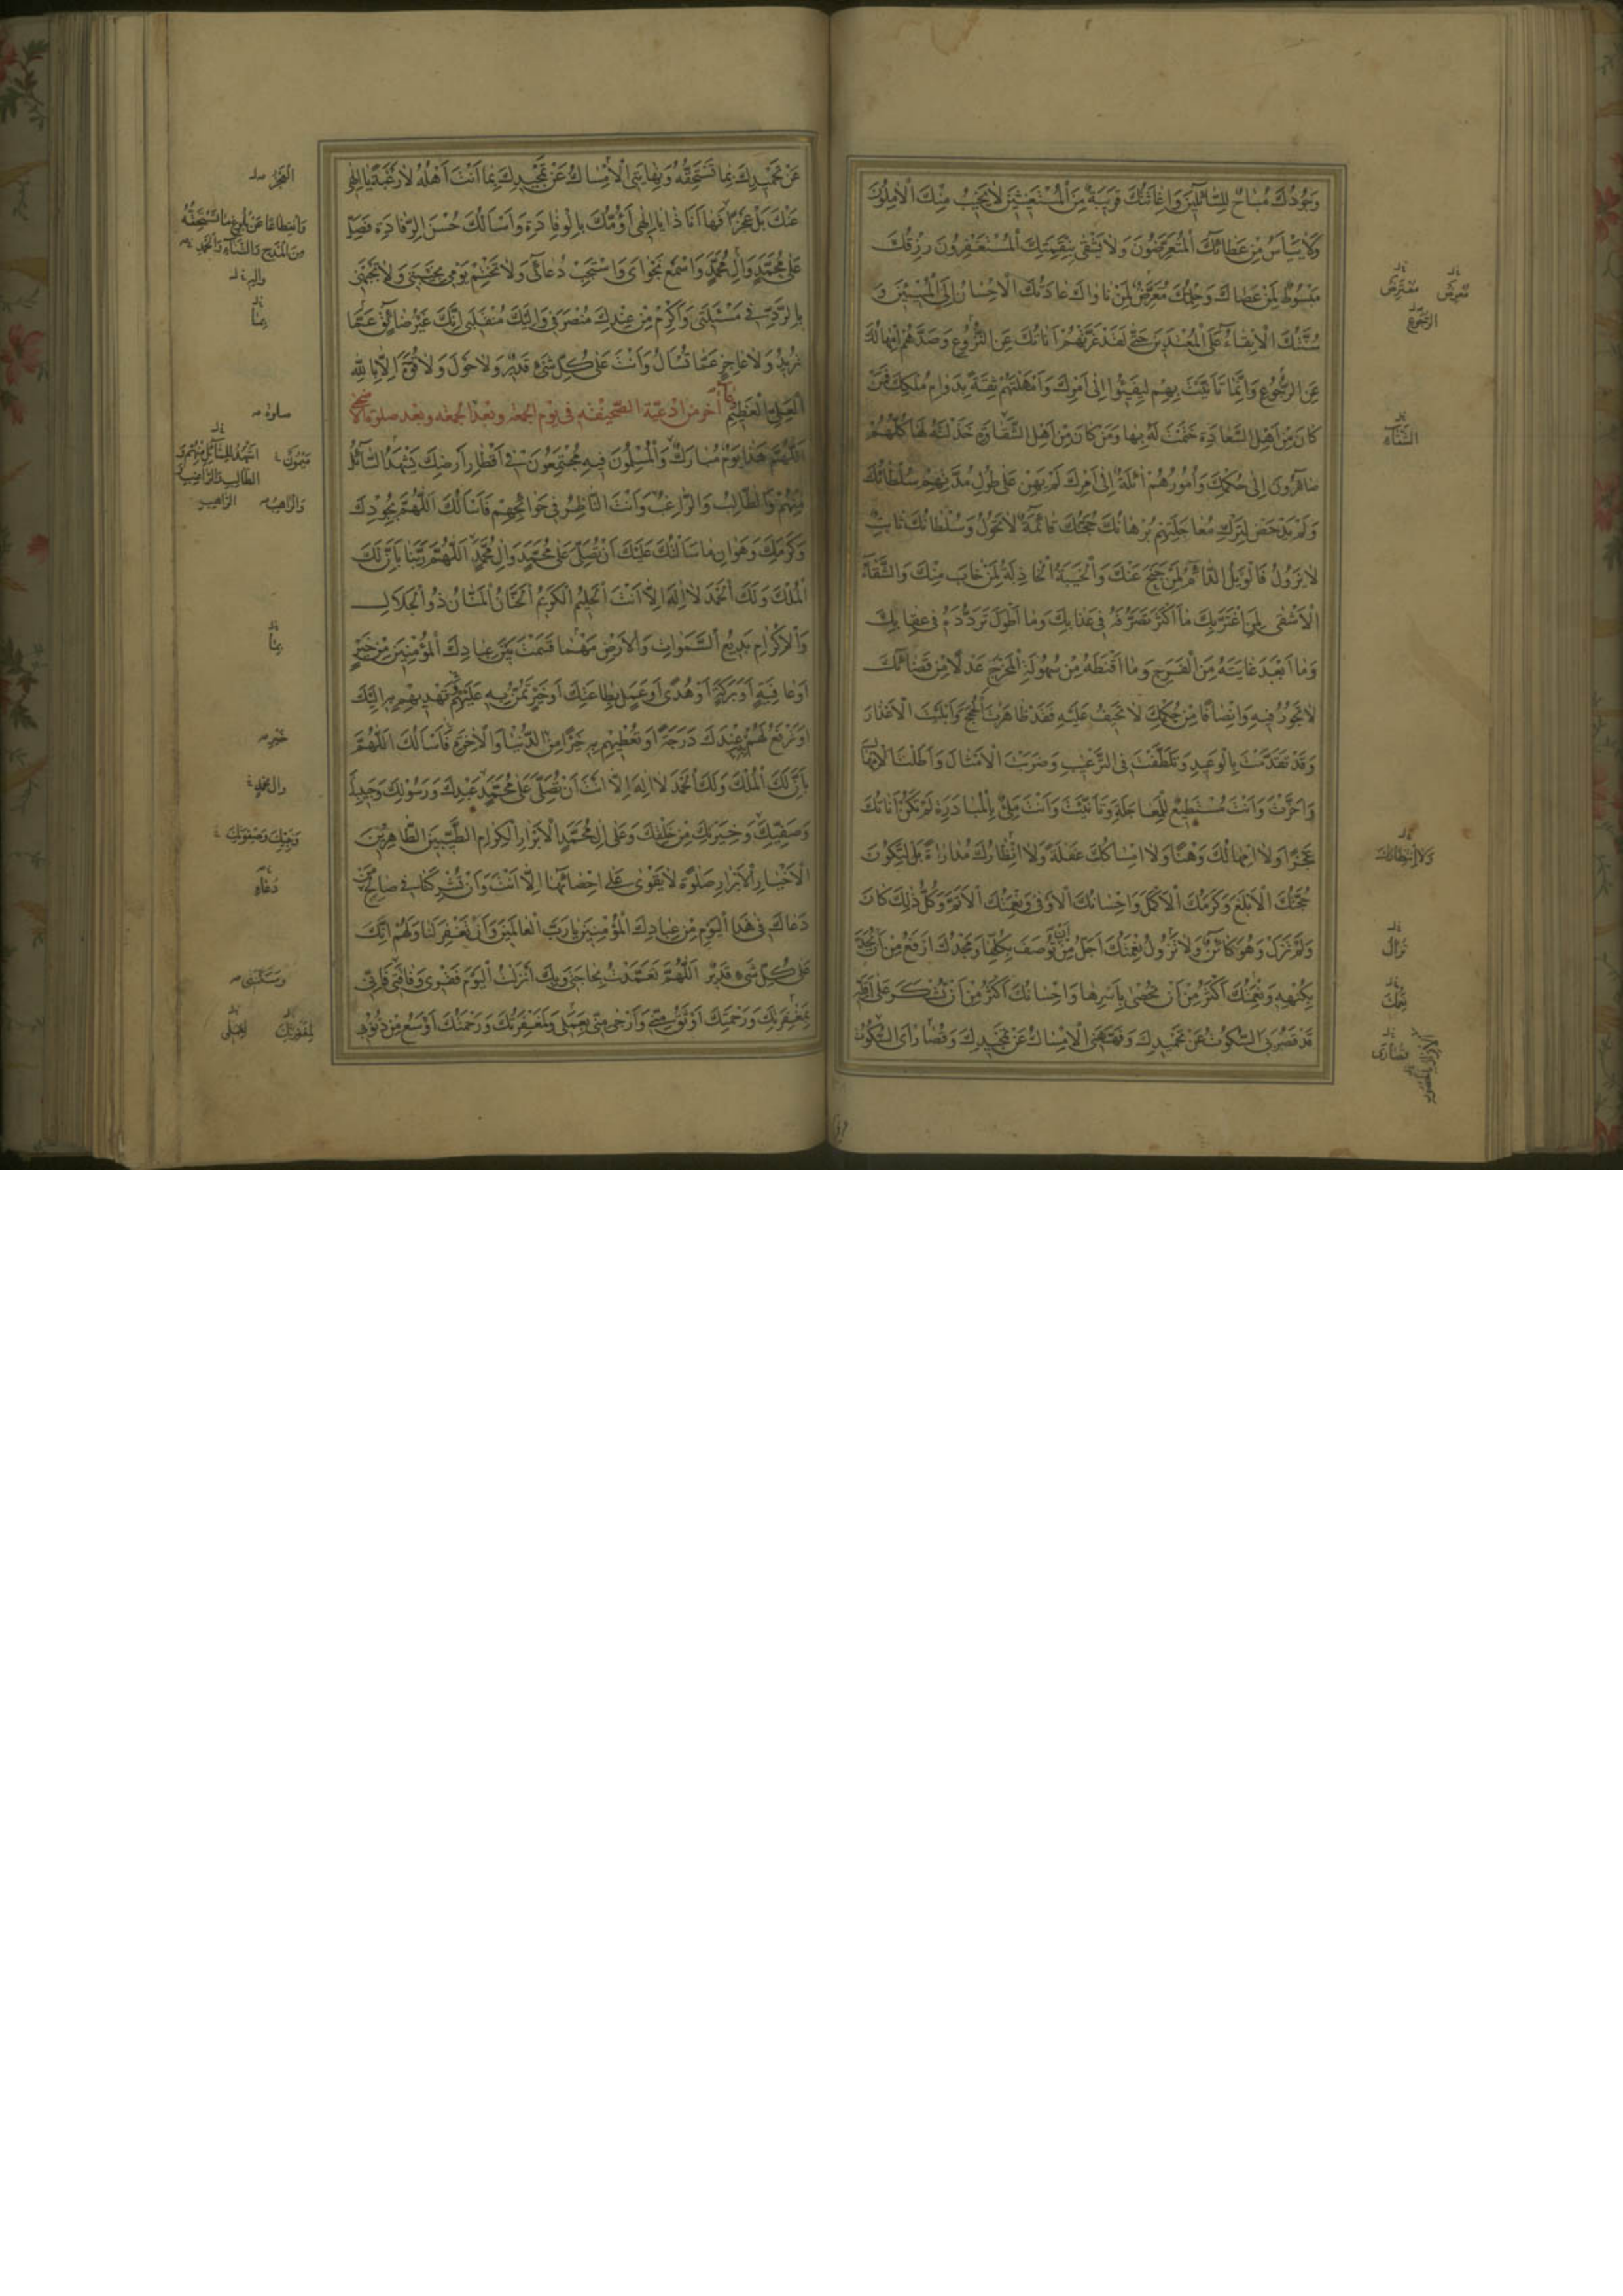 وَجُودُكَ مُبَاحٌ لِلسَّائِلِينَ وَإِغَاثَتُكَ قَرِيبَةٌ مِنَ الْمُسْتَغِيثِينَ لَا يَخِيبُ مِنْكَ الْآمِلُونَ
وَلَا يَيْأَسُ مِنْ عَطَائِكَ الْمُتَعَرِّضُونَ وَلَا يَشْقَى بِنَقِمَتِكَ الْمُسْتَغْفِرُونَ رِزْقُكَ
مَبْسُوطٌ لِمَنْ عَصَاكَ وَحِلْمُكَ مُعَرَّضٌ لِمَنْ نَاوَاكَ عَادَتُكَ الْإِحْسَانُ إِلَى الْمُسِيئِينَ وَ
سُنَّتُكَ الْإِبْقَاءُ عَلَى الْمُعْتَدِينَ حَتَّى لَقَدْ غَرَّتْهُمْ أَنَاتُكَ عَنِ النُّزُوعِ وَصَدَّهُمْ إِمْهَالُكَ
عَنِ الرُّجُوعِ وَإِنَّمَا تَأَنَّيْتَ بِهِمْ لِيَفِيئُوا إِلَى أَمْرِكَ وَأَمْهَلْتَهُمْ ثِقَةً بِدَوَامِ مُلْكِكَ فَمَنْ
كَانَ مِنْ أَهْلِ السَّعَادَةِ خَتَمْتَ لَهُ بِهَا وَمَنْ كَانَ مِنْ أَهْلِ الشَّقَاوَةِ خَذَلْتَهُ لَهَا كُلُّهُمْ
صَائِرُونَ إِلَى حُكْمِكَ وَأُمُورُهُمْ آئِلَةٌ إِلَى أَمْرِكَ لَمْ يَهِنْ عَلَى طُولِ مُدَّتِهِمْ سُلْطَانُكَ
وَلَمْ يَدْحَضْ لِتَرْكِ مُعَاجَلَتِهِمْ بُرْهَانُكَ حُجَّتُكَ قَائِمَةٌ لَا تَحُولُ وَسُلْطَانُكَ ثَابِتٌ
لَا يَزُولُ فَالْوَيْلُ الدَّائِمُ لِمَنْ جَنَحَ عَنْكَ وَالْخَيْبَةُ الْخَاذِلَةُ لِمَنْ خَابَ مِنْكَ وَالشَّقَاءُ
الْأَشْقَى لِمَنِ اغْتَرَّ بِكَ مَا أَكْثَرَ تَصَرُّفَهُ فِي عَذَابِكَ وَمَا أَطْوَلَ تَرَدُّدَهُ فِي عِقَابِكَ
وَمَا أَبْعَدَ غَايَتَهُ مِنَ الْفَرَجِ وَمَا أَقْنَطَهُ مِنْ سُهُولَةِ الْمَخْرَجِ عَدْلًا مِنْ قَضَائِكَ
لَا تَجُورُ فِيهِ وَإِنْصَافًا مِنْ حُكْمِكَ لَا تَحِيفُ عَلَيْهِ فَقَدْ ظَاهَرْتَ الْحُجَجَ وَأَبْلَيْتَ الْأَعْذَارَ
وَقَدْ تَقَدَّمْتَ بِالْوَعِيدِ وَتَلَطَّفْتَ فِي التَّرْغِيبِ وَضَرَبْتَ الْأَمْثَالَ وَأَطَلْتَ الْإِمْهَالَ
وَأَخَّرْتَ وَأَنْتَ مُسْتَطِيعٌ لِلْمُعَاجَلَةِ وَتَأَنَّيْتَ وَأَنْتَ مَلِيءٌ بِالْمُبَادَرَةِ لَمْ تَكُنْ أَنَاتُكَ
عَجْزًا وَلَا إِمْهَالُكَ وَهْنًا وَلَا إِمْسَاكُكَ غَفْلَةً وَلَا انْتِظَارُكَ مُدَارَاةً بَلْ لِتَكُونَ
حُجَّتُكَ الْأَبْلَغَ وَكَرَمُكَ الْأَكْمَلَ وَإِحْسَانُكَ الْأَوْفَى وَنِعْمَتُكَ الْأَتَمَّ وَكُلُّ ذَلِكَ كَانَ
وَلَمْ تَزَلْ وَهُوَ كَائِنٌ وَلَا تَزُولُ نِعْمَتُكَ أَجَلُّ مِنْ أَنْ تُوصَفَ بِكُلِّهَا وَمَجْدُكَ أَرْفَعُ مِنْ أَنْ يُحَدَّ
بِكُنْهِهِ وَنِعْمَتُكَ أَكْثَرُ مِنْ أَنْ تُحْصَى بِأَسْرِهَا وَإِحْسَانُكَ أَكْثَرُ مِنْ أَنْ تُشْكَرَ عَلَى أَقَلِّهِ
قَدْ قَصَّرَ بِيَ السُّكُوتُ عَنْ تَحْمِيدِكَ وَفَهَّهَنِي الْإِمْسَاكُ عَنْ تَمْجِيدِكَ وَقُصَارَايَ السُّكُوتُ
مُعْتَرِضٌ
الرُّجُوعِ
الشَّقَاءِ
وَلَا انْتِظَارُكَ
تَزَالُ
قُصَارَى
عَنْ تَحْمِيدِكَ بِمَا تَسْتَحِقُّهُ وَنِهَايَتِي الْإِمْسَاكُ عَنْ تَمْجِيدِكَ بِمَا أَنْتَ أَهْلُهُ لَا رَغْبَةً يَا إِلَهِي
عَنْكَ بَلْ عَجْزًا فَهَا أَنَا ذَا يَا إِلَهِي أَؤُمُّكَ بِالْوِفَادَةِ وَأَسْأَلُكَ حُسْنَ الرِّفَادَةِ فَصَلِّ
عَلَى مُحَمَّدٍ وَآلِ مُحَمَّدٍ وَاسْمَعْ نَجْوَايَ وَاسْتَجِبْ دُعَائِي وَلَا تَخْتِمْ يَوْمِي بِخَيْبَتِي وَلَا تَجْبَهْنِي
بِالرَّدِّ فِي مَسْئَلَتِي وَأَكْرِمْ مِنْ عِنْدِكَ مُنْصَرَفِي وَإِلَيْكَ مُنْقَلَبِي إِنَّكَ غَيْرُ ضَائِقٍ عَمَّا
تُرِيدُ وَلَا عَاجِزٍ عَمَّا تُسْأَلُ وَأَنْتَ عَلَى كُلِّ شَيْءٍ قَدِيرٌ وَلَا حَوْلَ وَلَا قُوَّةَ إِلَّا بِاللَّهِ
الْعَلِيِّ الْعَظِيمِ دعاء آخر من ادعية الصحيفة في يوم الجمعه وبعد الجمعه وبعد صلوة الاضحى
اللَّهُمَّ هَذَا يَوْمٌ مُبَارَكٌ وَالْمُسْلِمُونَ فِيهِ مُجْتَمِعُونَ فِي أَقْطَارِ أَرْضِكَ يَشْهَدُ السَّائِلُ
مِنْهُمْ وَالطَّالِبُ وَالرَّاغِبُ وَأَنْتَ النَّاظِرُ فِي حَوَائِجِهِمْ فَأَسْأَلُكَ اللَّهُمَّ بِجُودِكَ
وَكَرَمِكَ وَهَوَانِ مَا سَأَلْتُكَ عَلَيْكَ أَنْ تُصَلِّيَ عَلَى مُحَمَّدٍ وَآلِ مُحَمَّدٍ اللَّهُمَّ رَبَّنَا بِأَنَّ لَكَ
الْمُلْكَ وَلَكَ الْحَمْدَ لَا إِلَهَ إِلَّا أَنْتَ الْحَلِيمُ الْكَرِيمُ الْحَنَّانُ الْمَنَّانُ ذُو الْجَلَالِ
وَالْإِكْرَامِ بَدِيعُ السَّمَوَاتِ وَالْأَرْضِ مَهْمَا قَسَمْتَ بَيْنَ عِبَادِكَ الْمُؤْمِنِينَ مِنْ خَيْرٍ
أَوْ عَافِيَةٍ أَوْ بَرَكَةٍ أَوْ هُدًى أَوْ عَمَلٍ بِطَاعَتِكَ أَوْ خَيْرٍ تَمُنُّ بِهِ عَلَيْهِمْ تَهْدِيهِمْ بِهِ إِلَيْكَ
أَوْ تَرْفَعُ لَهُمْ عِنْدَكَ دَرَجَةً أَوْ تُعْطِيهِمْ بِهِ خَيْرًا مِنَ الدُّنْيَا وَالْآخِرَةِ فَأَسْأَلُكَ اللَّهُمَّ
بِأَنَّ لَكَ الْمُلْكَ وَلَكَ الْحَمْدَ لَا إِلَهَ إِلَّا أَنْتَ أَنْ تُصَلِّيَ عَلَى مُحَمَّدٍ عَبْدِكَ وَرَسُولِكَ وَحَبِيبِكَ
وَصَفِيِّكَ وَخِيَرَتِكَ مِنْ خَلْقِكَ وَعَلَى آلِ مُحَمَّدٍ الْأَبْرَارِ الْكِرَامِ الطَّيِّبِينَ الطَّاهِرِينَ
الْأَخْيَارِ الْأَبْرَارِ صَلَوةً لَا يَقْوَى عَلَى إِحْصَائِهَا إِلَّا أَنْتَ وَأَنْ تُشْرِكَنَا فِي صَالِحِ مَنْ
دَعَاكَ فِي هَذَا الْيَوْمِ مِنْ عِبَادِكَ الْمُؤْمِنِينَ يَا رَبَّ الْعَالَمِينَ وَأَنْ تَغْفِرَ لَنَا وَلَهُمْ إِنَّكَ
عَلَى كُلِّ شَيْءٍ قَدِيرٌ اللَّهُمَّ تَعَمَّدْتُ بِحَاجَتِي وَبِكَ أَنْزَلْتُ الْيَوْمَ فَقْرِي وَفَاقَتِي فَإِنِّي
بِمَغْفِرَتِكَ وَرَحْمَتِكَ أَوْثَقُ مِنِّي وَأَرْجَى مِنِّي بِعَمَلِي وَلَمَغْفِرَتُكَ وَرَحْمَتُكَ أَوْسَعُ مِنْ ذُنُوبِي
الْعَجْزُ
وَانْقِطَاعًا عَنْ بُلُوغِ مَا تَسْتَحِقُّهُ
مِنَ الْمَدْحِ وَالثَّنَاءِ وَالْحَمْدِ
وَآلِهِ
عَمَّا
صلوة
خير
وَآلِ مُحَمَّدٍ
دُعَاءِ
وَمَسْكَنَتِي
لِمَغْفِرَتِكَ